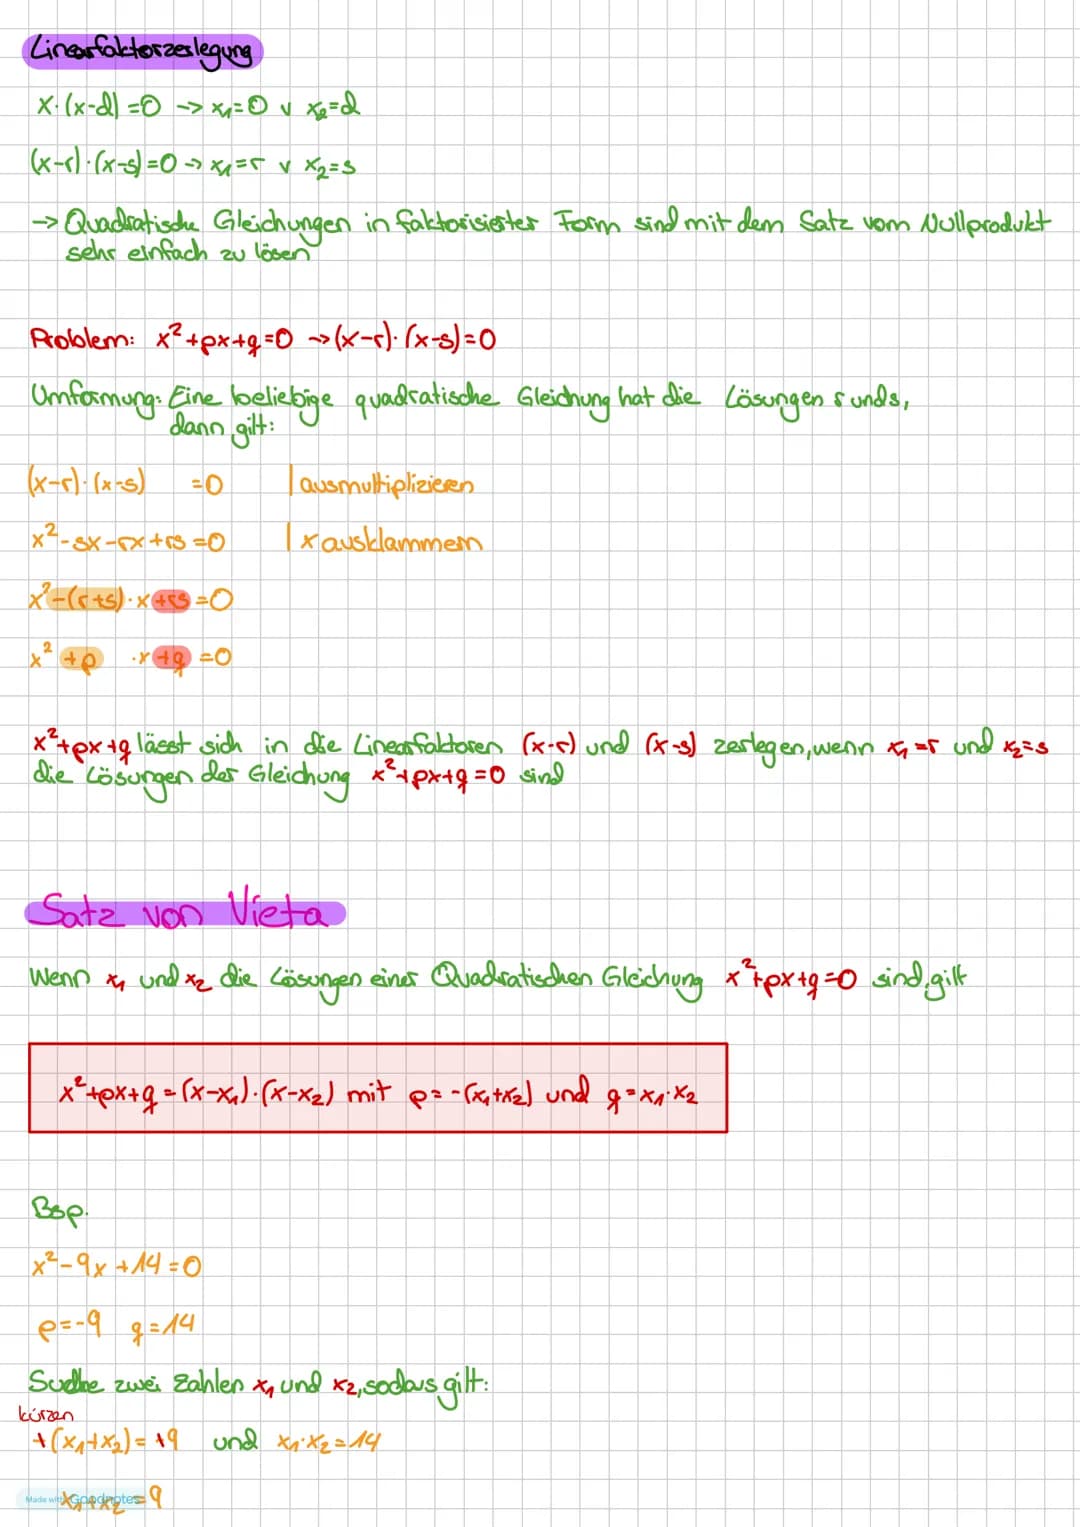 Linearfaktorzerlegung
x·(x-d)=0 -> x₁=0 ∨ x₂=d
(x-r)·(x-s)=0 -> x₁=r ∨ x₂=s
-> Quadratische Gleichungen in faktorisierter Form sind mit dem Satz vom Nullprodukt
sehr einfach zu lösen
Problem: x²+px+q=0 -> (x-r)·(x-s)=0
Umformung: Eine beliebige quadratische Gleichung hat die Lösungen r und s,
dann gilt:
(x-r)·(x-s) =0 | ausmultiplizieren
x²-sx-rx+rs=0 | x ausklammern
x²-(r+s)·x+rs=0
x² +p ·x+q=0
x²+px+q lässt sich in die Linearfaktoren (x-r) und (x-s) zerlegen, wenn x₁=r und x₂=s
die Lösungen der Gleichung x²+px+q=0 sind
Satz von Vieta
Wenn x₁ und x₂ die Lösungen einer Quadratischen Gleichung x²+px+q=0 sind, gilt
x²+px+q=(x-x₁)·(x-x₂) mit p=-(x₁+x₂) und q=x₁·x₂
Bsp.
x²-9x+14=0
p=-9 q=14
Suche zwei Zahlen x₁ und x₂, sodass gilt:
kürzen
+(x₁+x₂)=+9 und x₁·x₂=14
x₁+x₂=9
Made with Goodnotes